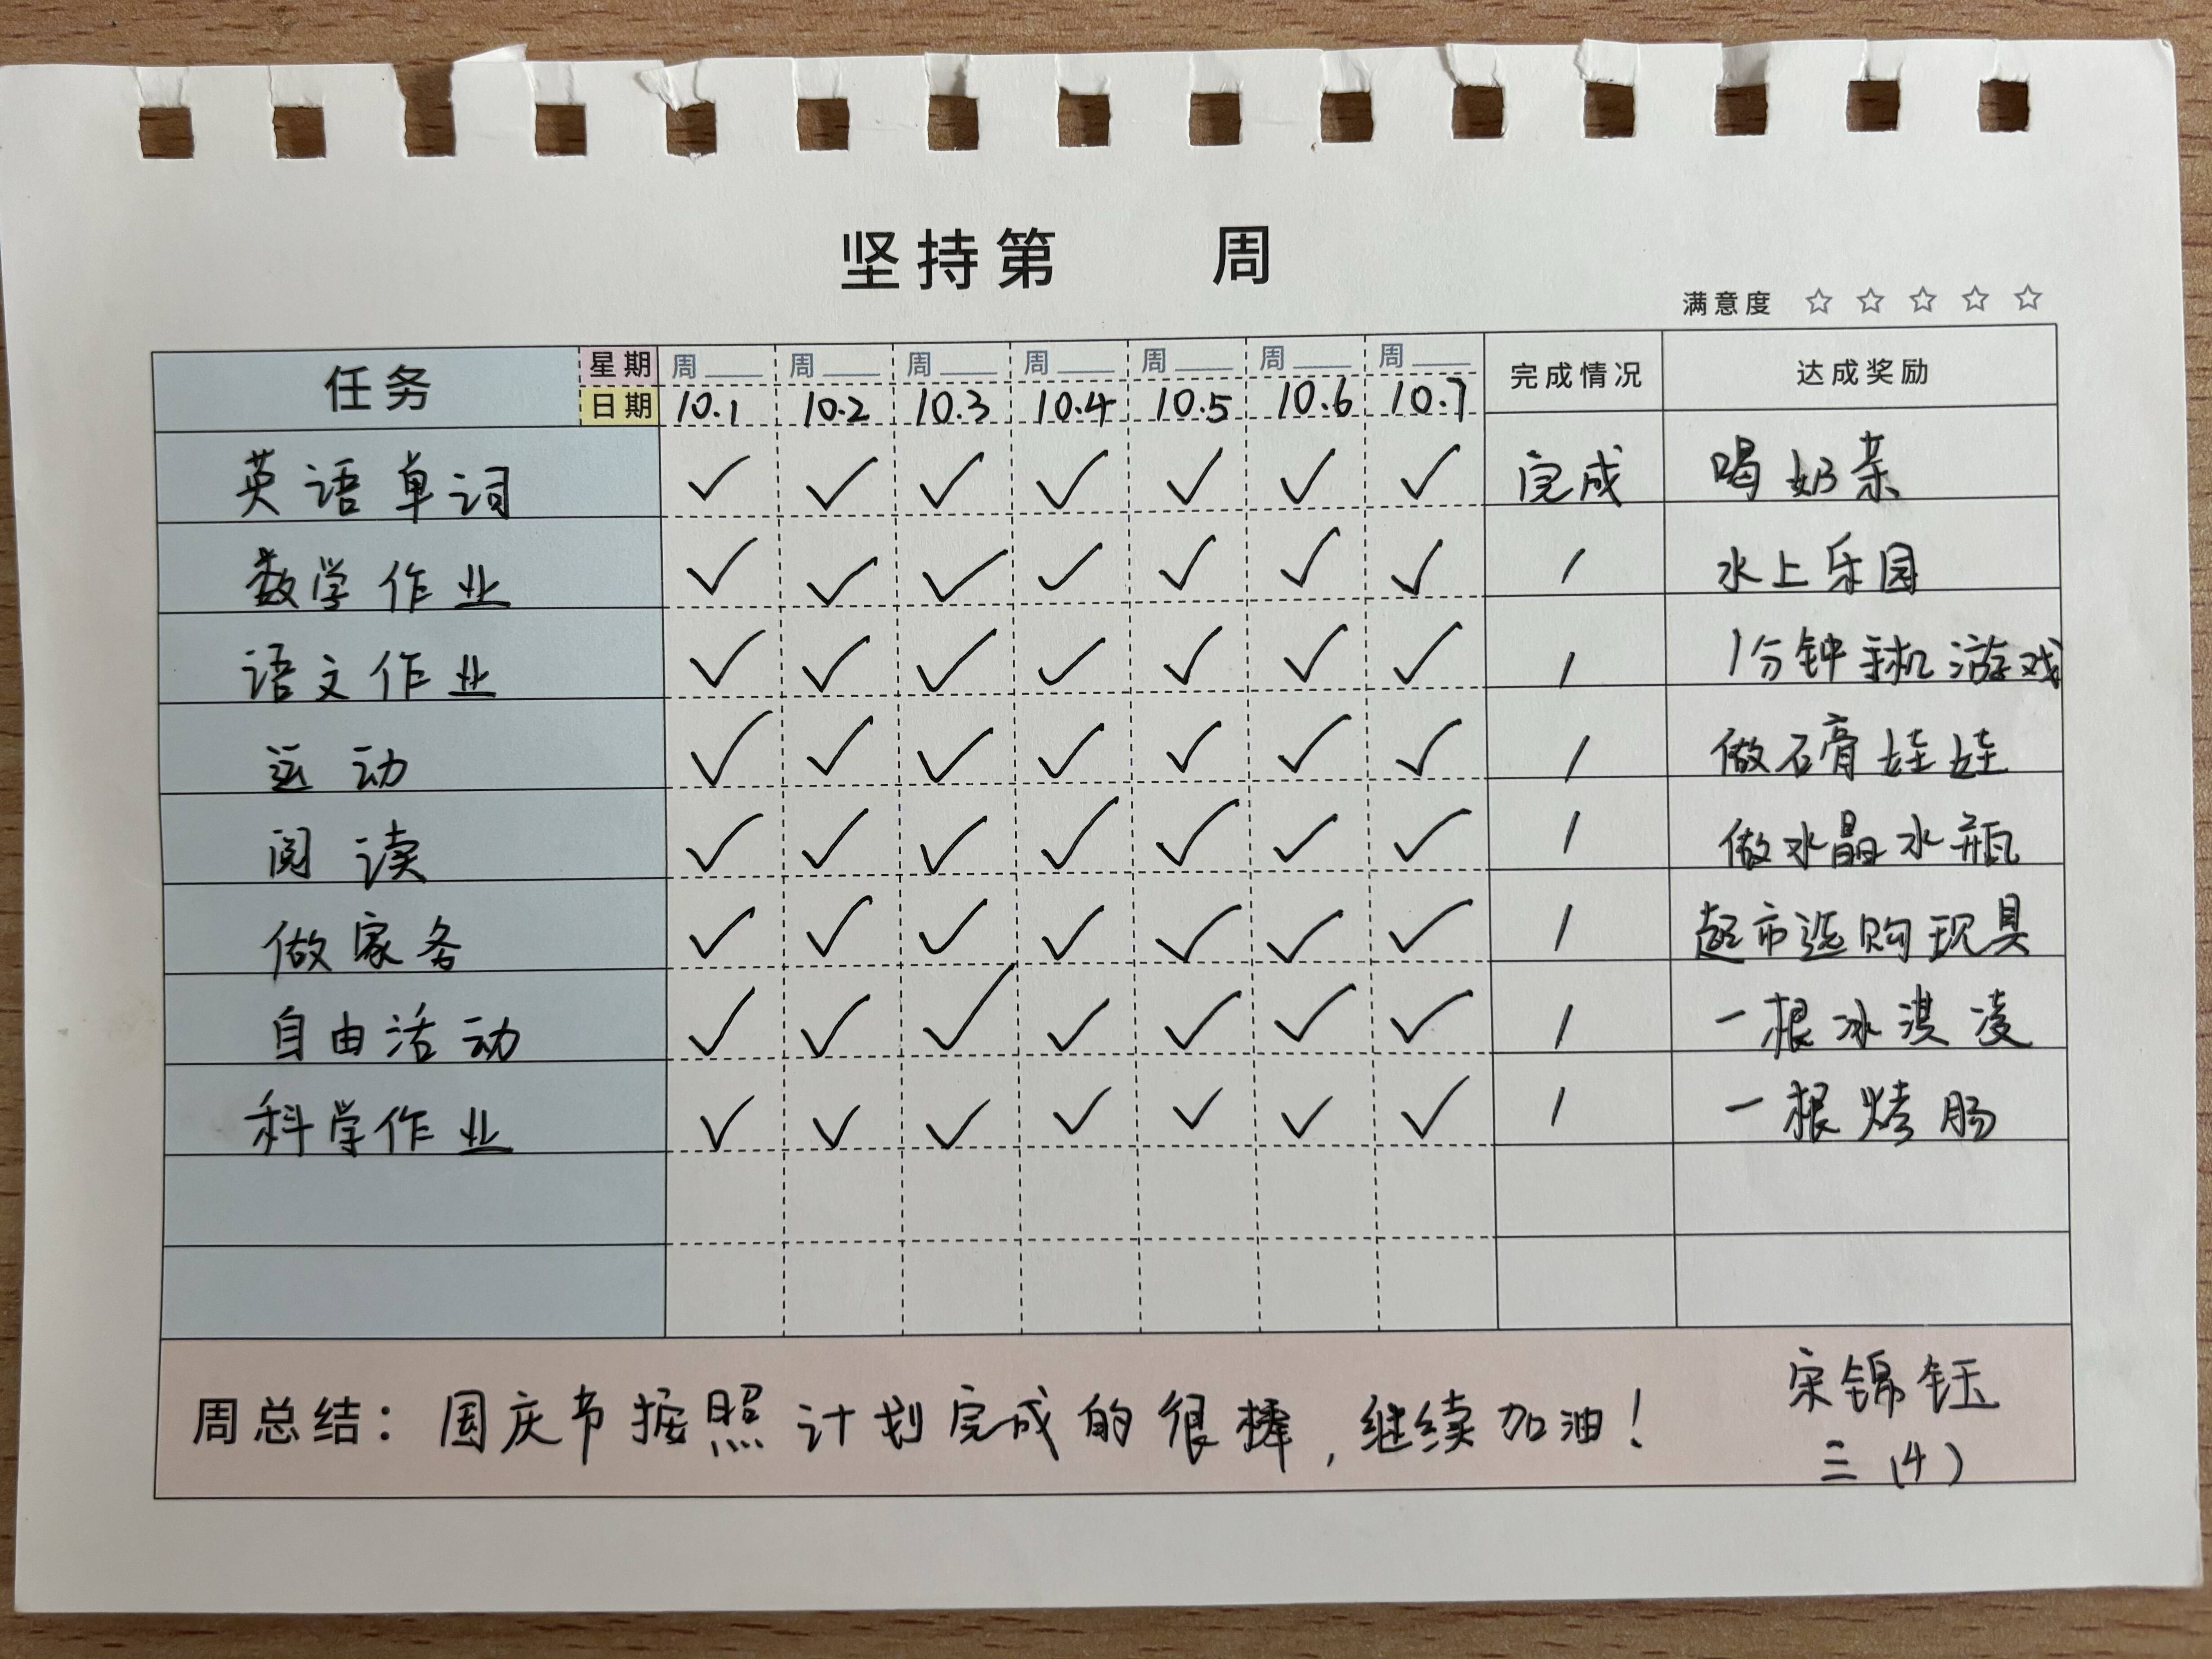 坚持第 周
满意度 ☆ ☆ ☆ ☆ ☆
任务 星期 周 周 周 周 周 周 周 完成情况 达成奖励
日期 10.1 10.2 10.3 10.4 10.5 10.6 10.7
英语单词 ✓ ✓ ✓ ✓ ✓ ✓ ✓ 完成 喝奶茶
数学作业 ✓ ✓ ✓ ✓ ✓ ✓ ✓ / 水上乐园
语文作业 ✓ ✓ ✓ ✓ ✓ ✓ ✓ / 1分钟手机游戏
运动 ✓ ✓ ✓ ✓ ✓ ✓ ✓ / 做石膏娃娃
阅读 ✓ ✓ ✓ ✓ ✓ ✓ ✓ / 做水晶水瓶
做家务 ✓ ✓ ✓ ✓ ✓ ✓ ✓ / 超市选购玩具
自由活动 ✓ ✓ ✓ ✓ ✓ ✓ ✓ / 一根冰淇凌
科学作业 ✓ ✓ ✓ ✓ ✓ ✓ ✓ / 一根烤肠
周总结：国庆节按照计划完成的很棒，继续加油！
宋锦钰
三(4)